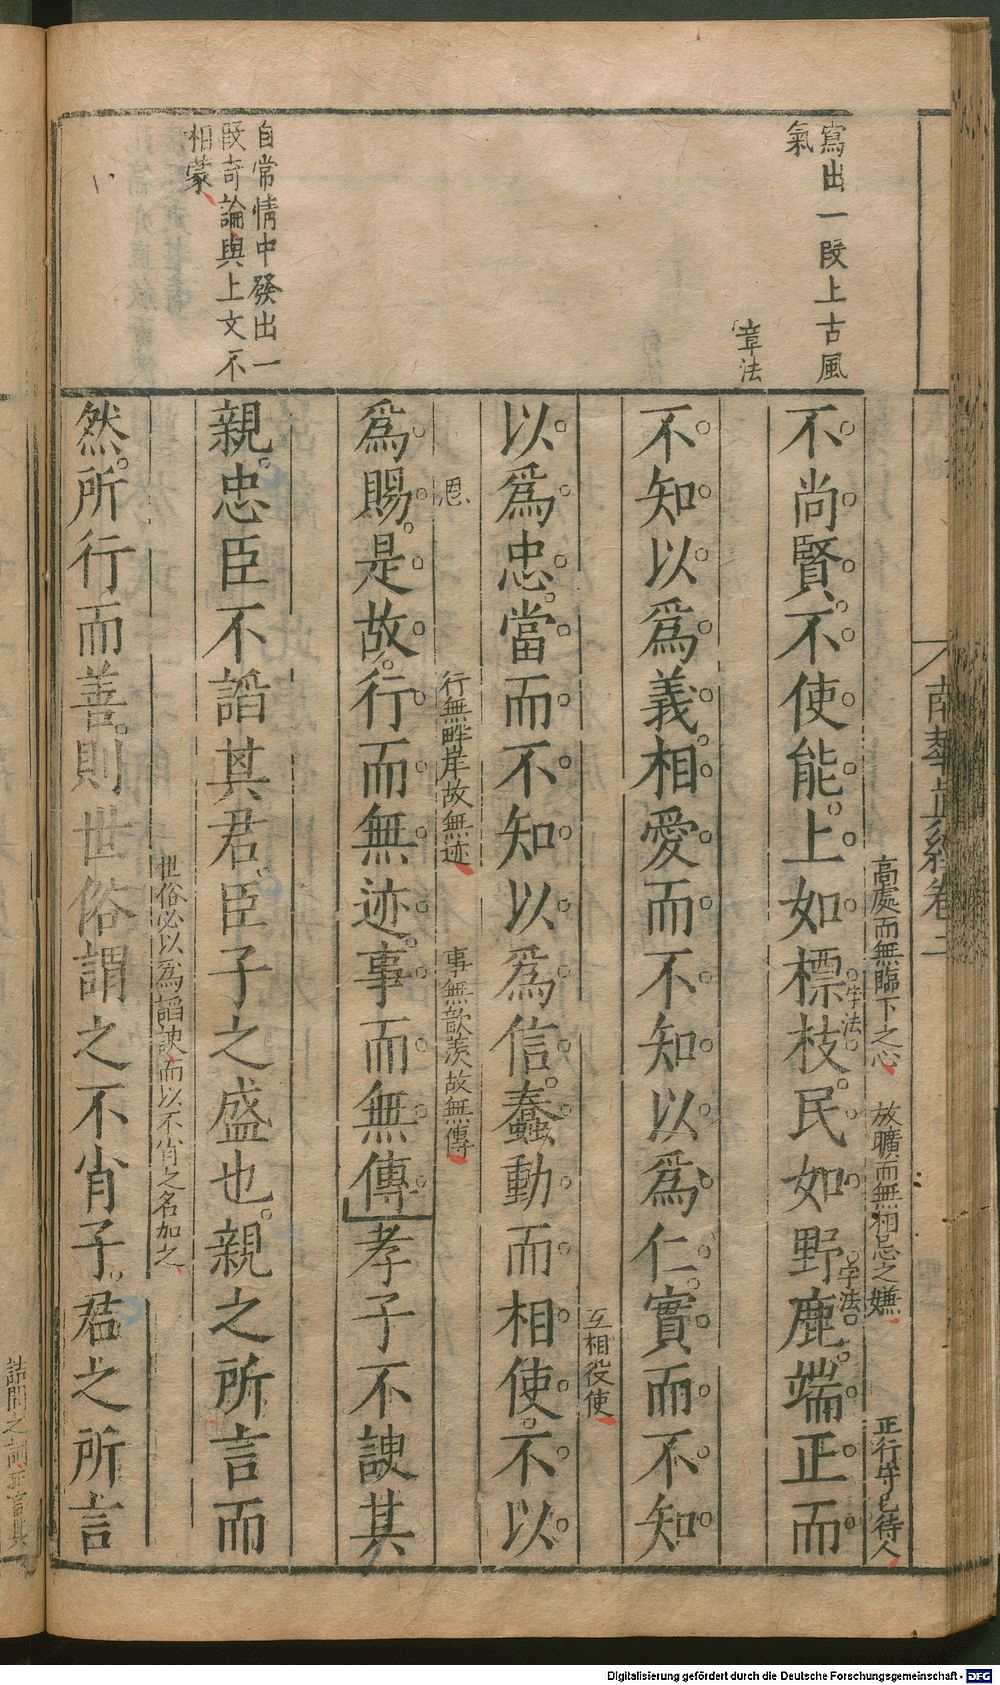 寫出一段上古風
氣
章法
自常情中發出一
段奇論與上文不
相蒙
南華真經卷二
高處而無臨下之心 放曠而無相忌之嫌 正行守己待人
不尚賢。不使能。上如標枝。民如野鹿。端正而
字法
字法
不知以爲義。相愛而不知以爲仁。實而不知
互相役使
以爲忠。當而不知以爲信。蠢動而相使。不以
恩 行無畔岸故無迹 事無歆羨故無傳
爲賜。是故行而無迹。事而無傳孝子不諛其
親。忠臣不謟其君、臣子之盛也。親之所言而
世俗必以爲謟諛而以不肖之名加之
然。所行而善。則世俗謂之不肖子。君之所言
詰問之詞
Digitalisierung gefördert durch die Deutsche Forschungsgemeinschaft - DFG